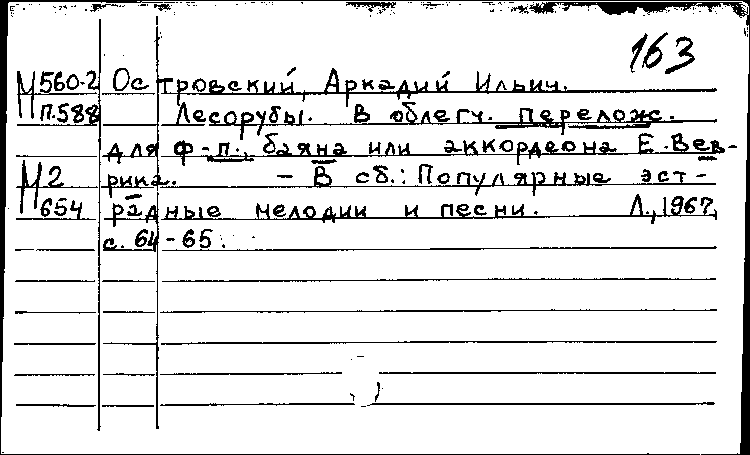 163
М 560-2 Островский, Аркадий Ильич.
П.588 Лесорубы. В облегч. перелож.
для ф-п., баяна или аккордеона Е. Вев-
М 2 рика. - В сб.: Популярные эст-
654 радные мелодии и песни. Л., 1967,
с. 64-65.